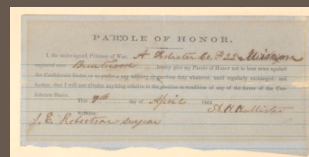 PAROLE OF HONOR.
I, the undersigned, Prisoner of War, A Co. F 22 Missouri
captured near hereby give my Parole of Honor not to bear arms against
the Confederate States, or to perform any military or garrison duty whatever, until regularly exchanged; and
further, that I will not divulge anything relative to the position or condition of any of the forces of the Con-
federate States.
This 9th day of April 1862
J. E. Robertson Surgeon